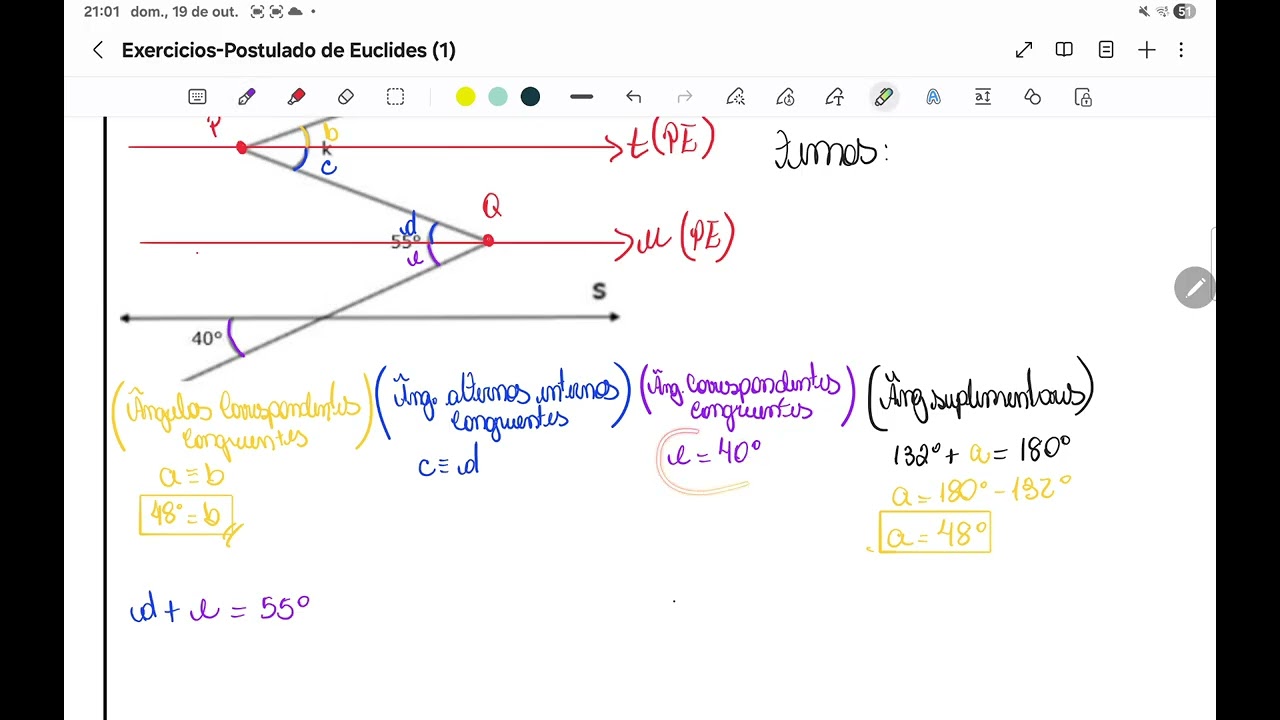 21:01 dom., 19 de out. 51
Exercicios-Postulado de Euclides (1)
P
b
k
t (PE)
Fumos:
c
Q
d
55°
u (PE)
e
S
40°
(Ângulos Correspondentes congruentes)
a ≡ b
48° = b
(Âng. alternos internos congruentes)
c ≡ d
(Âng Correspondentes congruentes)
e = 40°
(Âng suplementares)
132° + a = 180°
a = 180° - 132°
a = 48°
d + e = 55°